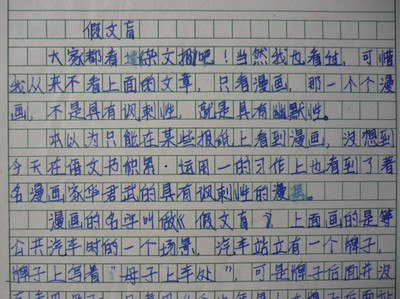 假文盲
大家都看过杂文报吧！当然我也看过，可惜
我从来不看上面的文章，只看漫画，那一个个漫
画，不是具有讽刺性，就是具有幽默性。
本以为只能在某些报纸上看到漫画，没想到
今天在语文书积累·运用一的习作上也看到了著
名漫画家华君武的具有讽刺性的漫画。
漫画的名字叫做《假文盲》。上面画的是等
公共汽车时的一个场景，汽车站立有一个牌子，
牌子上写着“母子上车处”，可是牌子后面并没